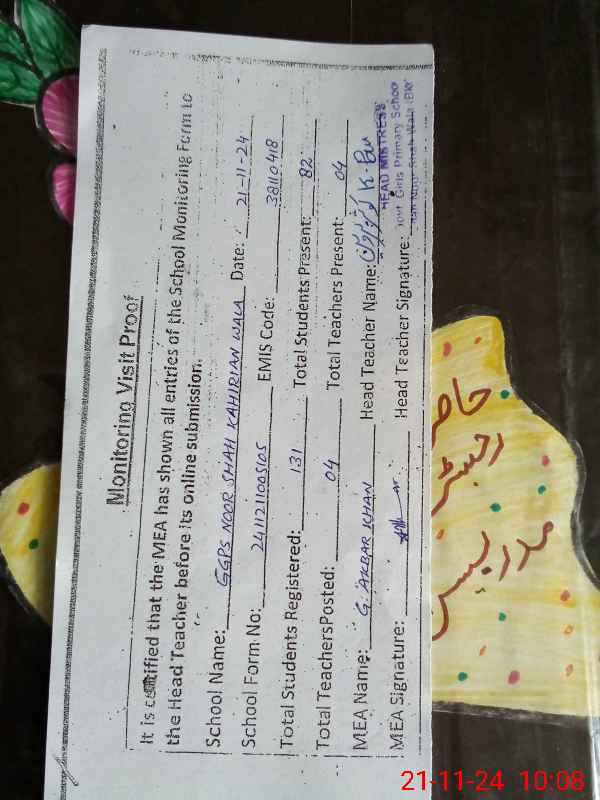 Monitoring Visit Proof
It is certified that the MEA has shown all entries of the School Monitoring Form to
the Head Teacher before its online submission.
School Name: GGPS NOOR SHAH KAHIRIAN WALA Date: 21-11-24
School Form No: 2411211005105 EMIS Code: 38110418
Total Students Registered: 131 Total Students Present: 82
Total TeachersPosted: 04 Total Teachers Present: 04
MEA Name: G. AKBAR KHAN Head Teacher Name:
MEA Signature: Head Teacher Signature:
HEAD MISTRESS
Govt Girls Primary School
Noor Shah Wala
حاضری
رجسٹر
مدریس
21-11-24 10:08